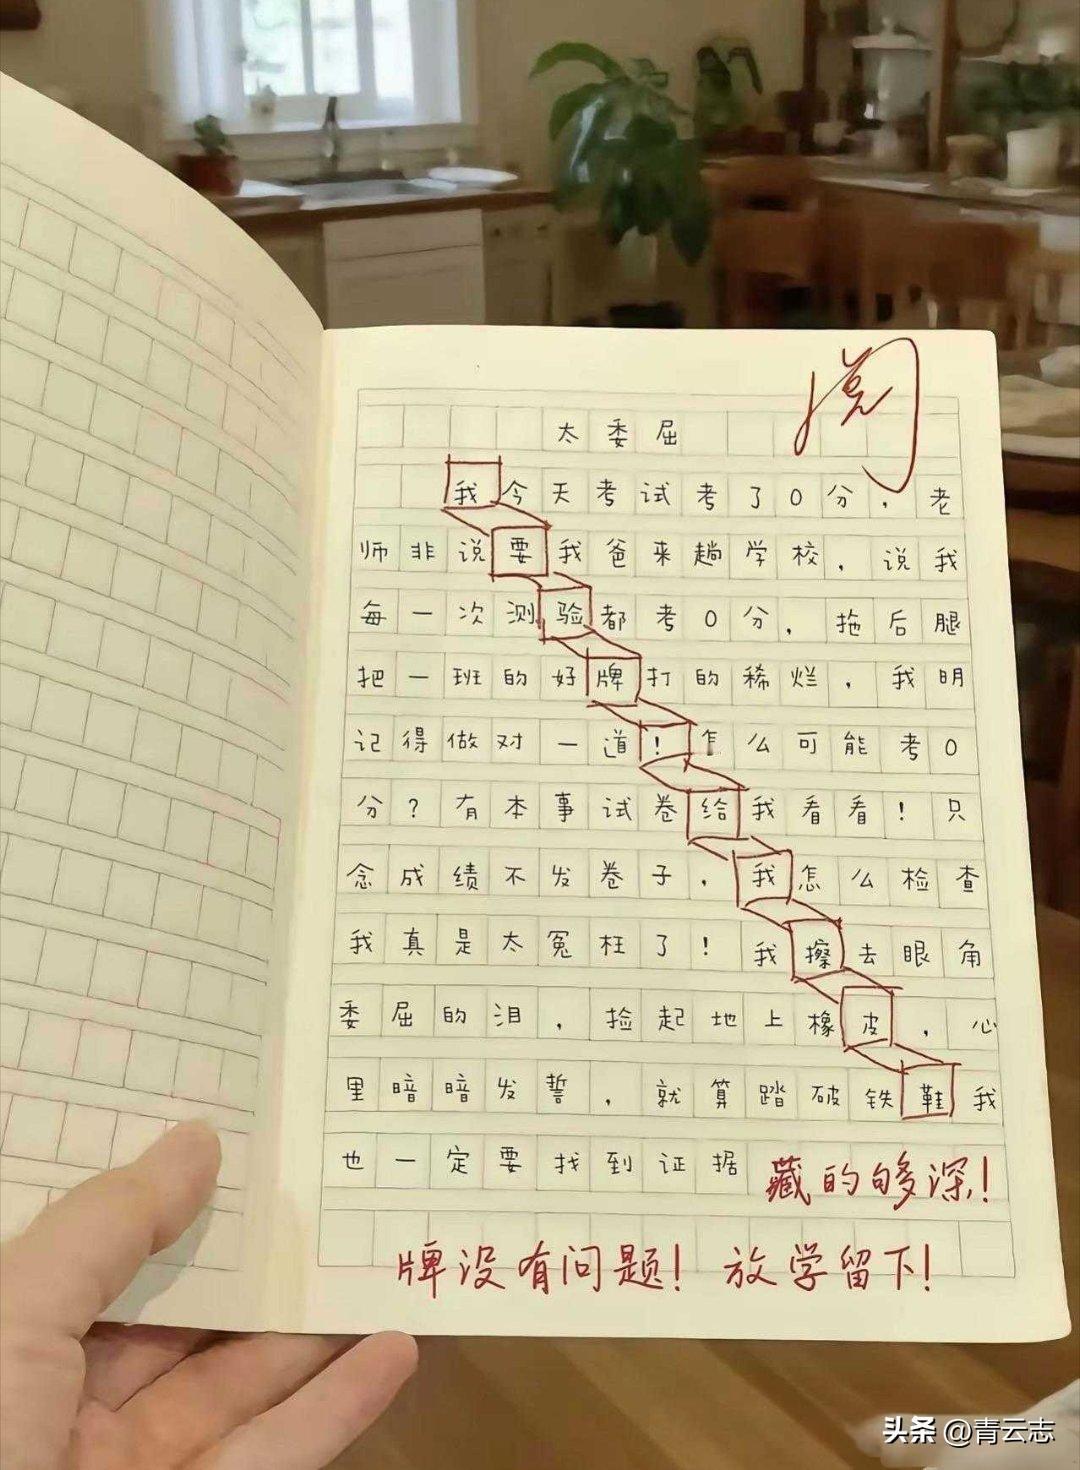 阅
太委屈
我今天考试考了0分，老
师非说要我爸来趟学校，说我
每一次测验都考0分，拖后腿
把一班的好牌打的稀烂，我明
记得做对一道！怎么可能考0
分？有本事试卷给我看看！只
念成绩不发卷子，我怎么检查
我真是太冤枉了！我擦去眼角
委屈的泪，捡起地上橡皮，心
里暗暗发誓，就算踏破铁鞋我
也一定要找到证据
藏的够深！
牌没有问题！放学留下！
头条 @青云志